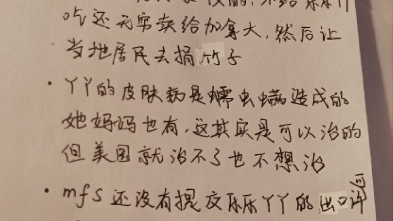 吃还无常卖给加拿大,然后让
当地居民去捐竹子
·丫丫的皮肤病是蠕虫螨造成的
她妈妈也有,这其实是可以治的
但美国就治不了也不想治
·mfs还没有提交乐乐丫丫的出口许可